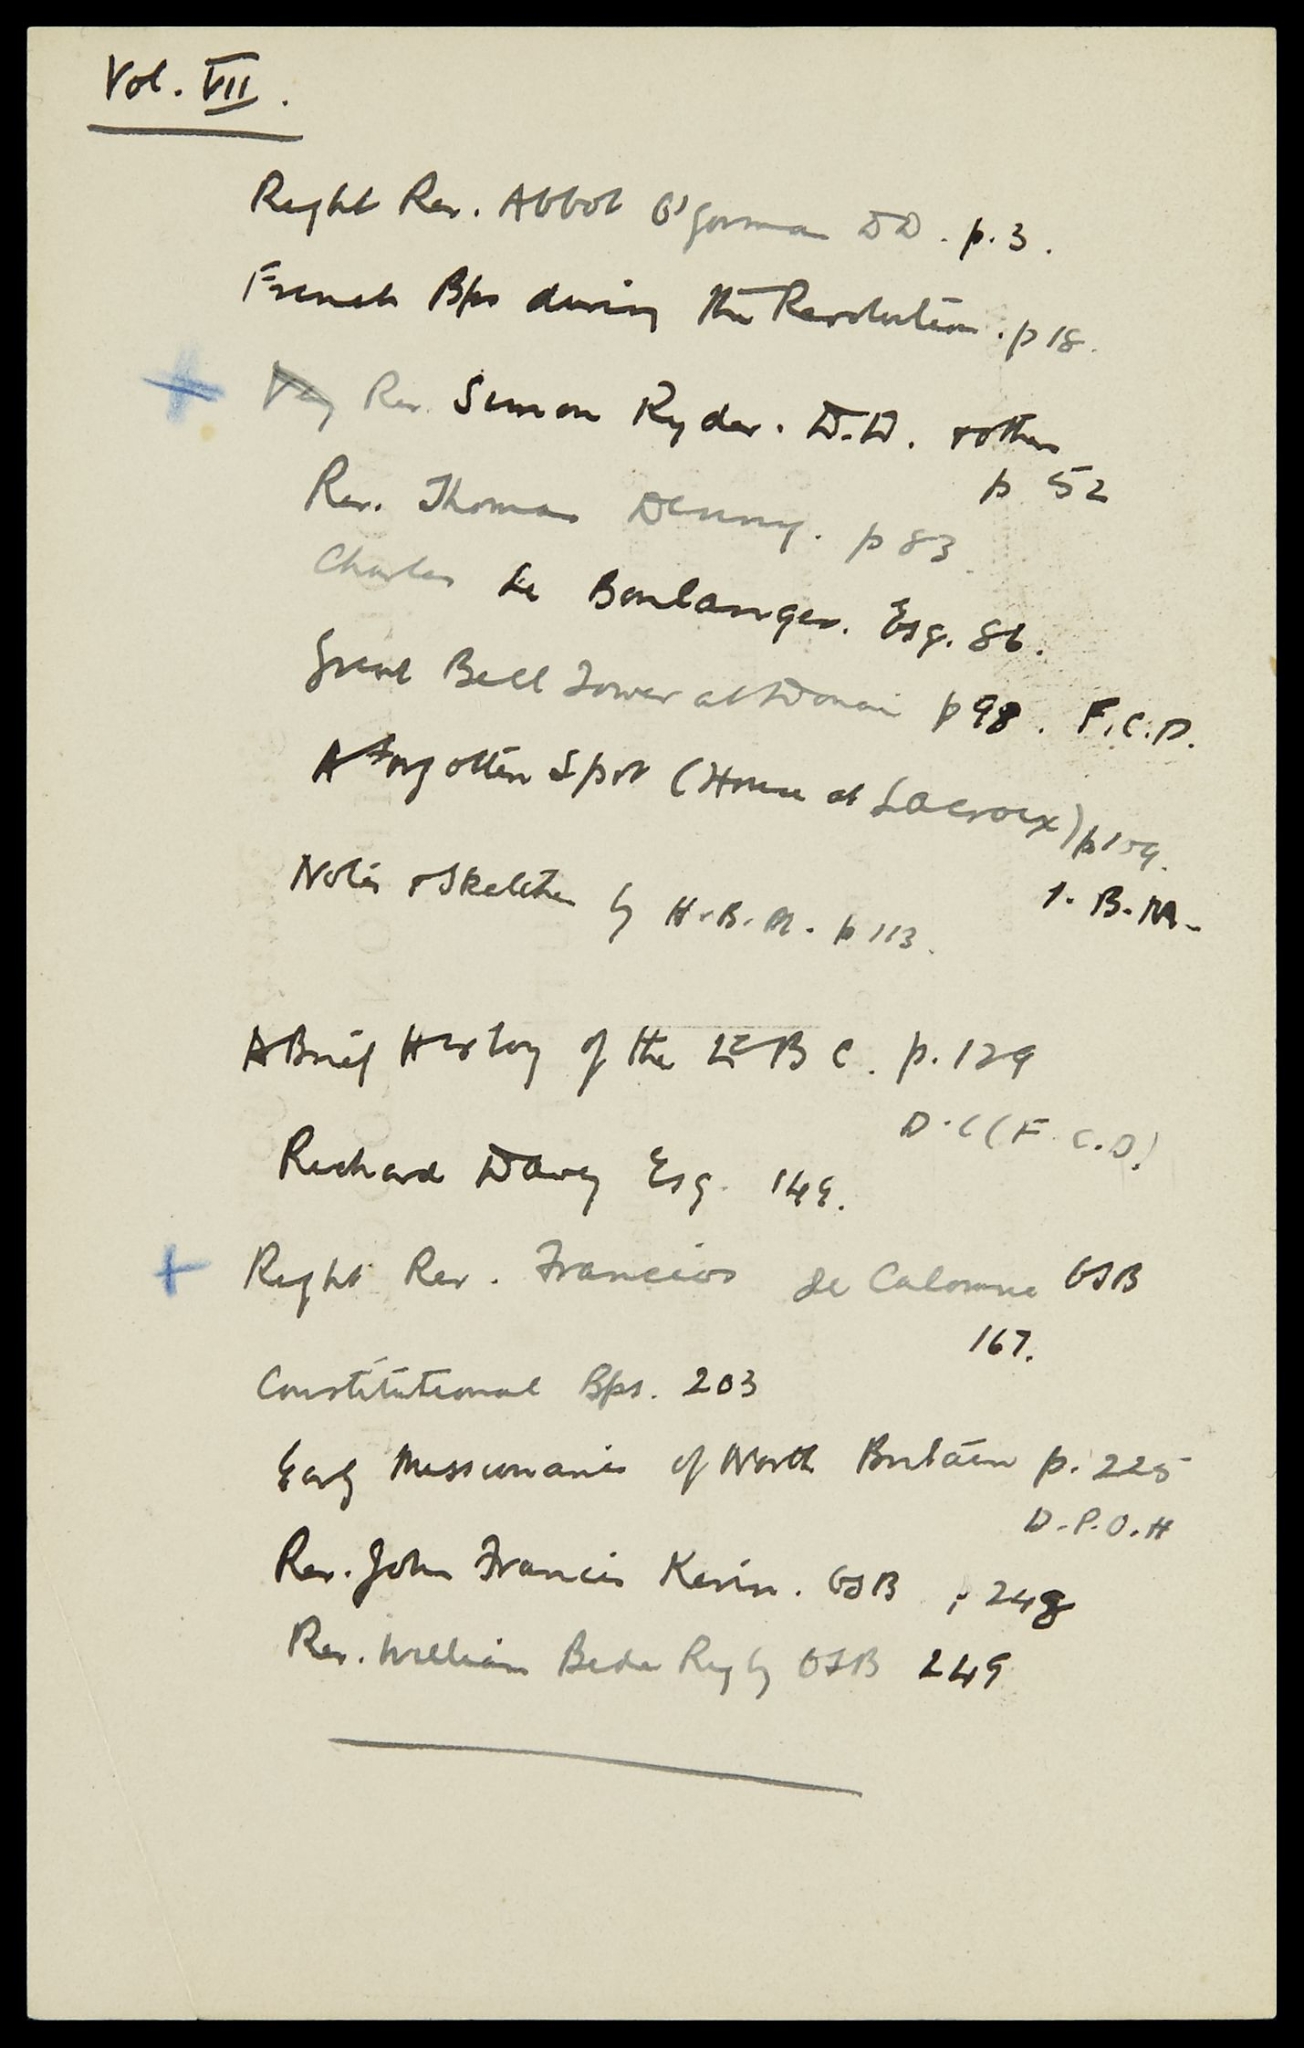 Vol. VII.
Right Rev. Abbot O'Gorman DD. p. 3.
French Bps during the Revolution. p 18.
+ Very Rev. Simon Ryder. D.D. & others
p 52
Rev. Thomas Denny. p 83.
Charles Le Boulanger. Esq. 86.
Great Bell Tower at Douai p 98. F.C.D.
A Forgotten Spot (House at Lacroix) p 109.
1. B. M.
Notes & Sketches by H. B. M. p 113.
A Brief History of the B C. p. 129
D. C (F. C. D.)
Richard Davey Esq. 149.
+ Right Rev. Francis de Calonne OSB
167.
Constitutional Bps. 203
Early Missionaries of North Britain p. 225
D. P. O. H
Rev. John Francis Kevin. OSB p 248
Rev. William Bede Rigby OSB 249